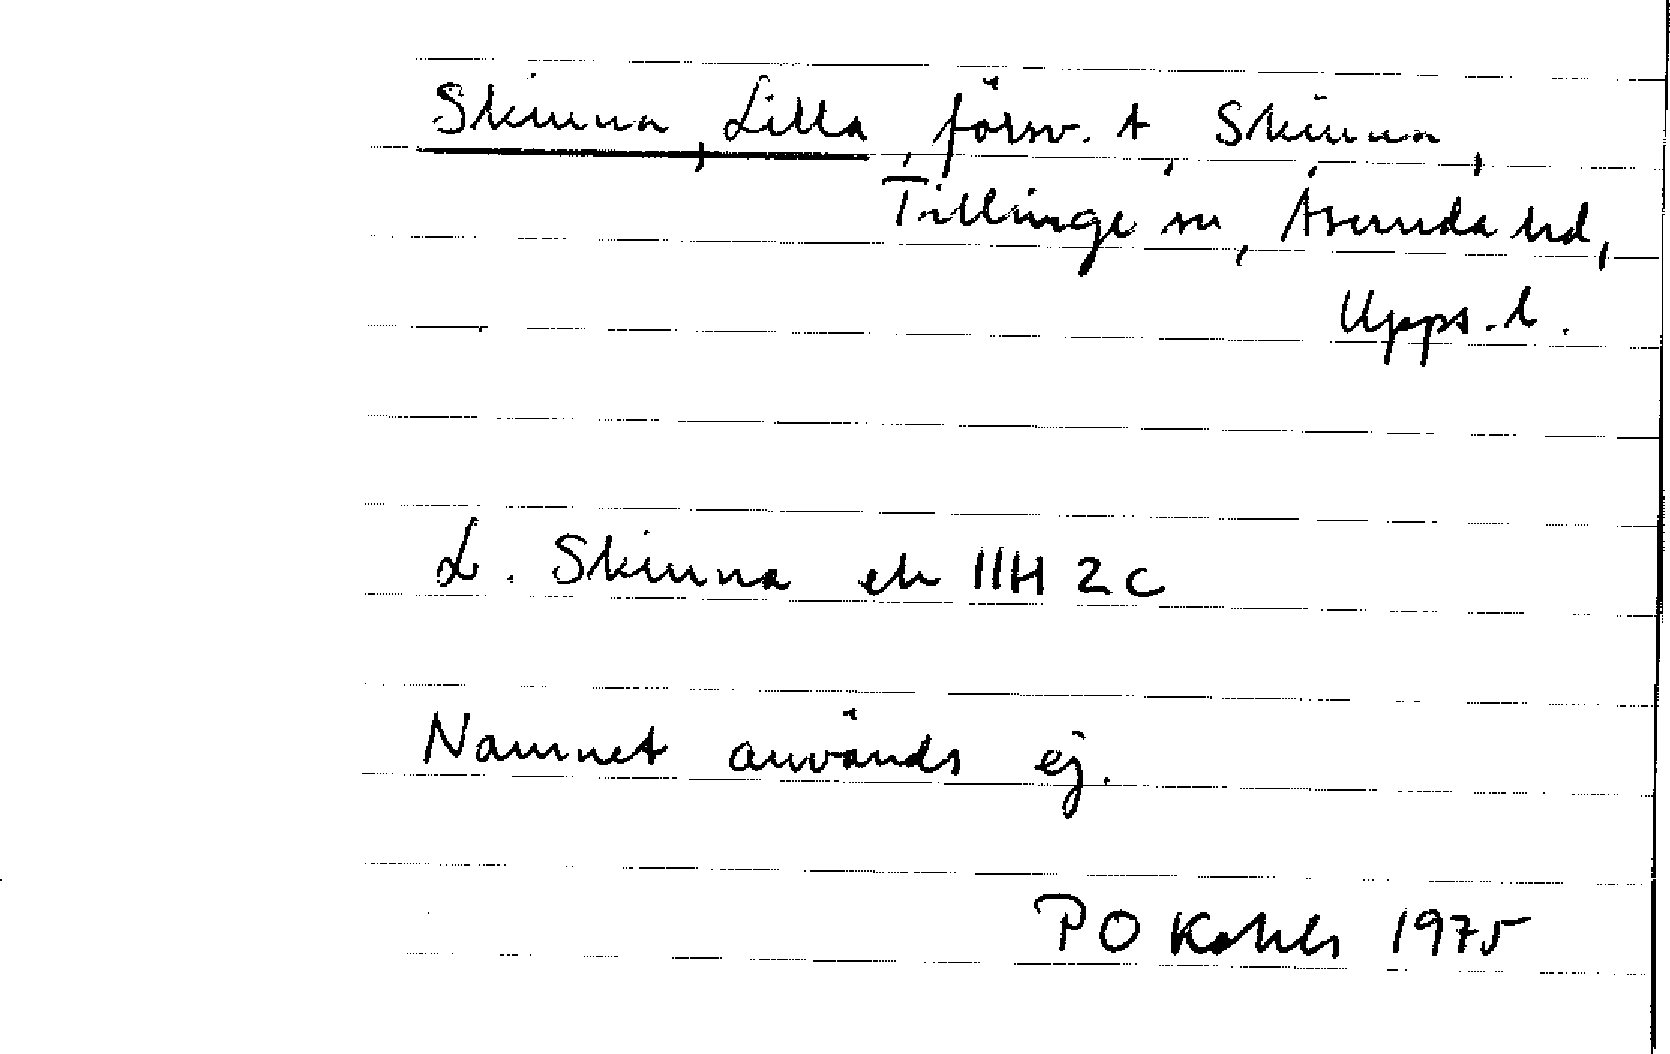 Skinna, Lilla, försv. t, Skinna,
Tillinge sn, Åsunda hd,
Upps. l.
L. Skinna ek 11H 2c
Namnet används ej.
P O Kohls 1975